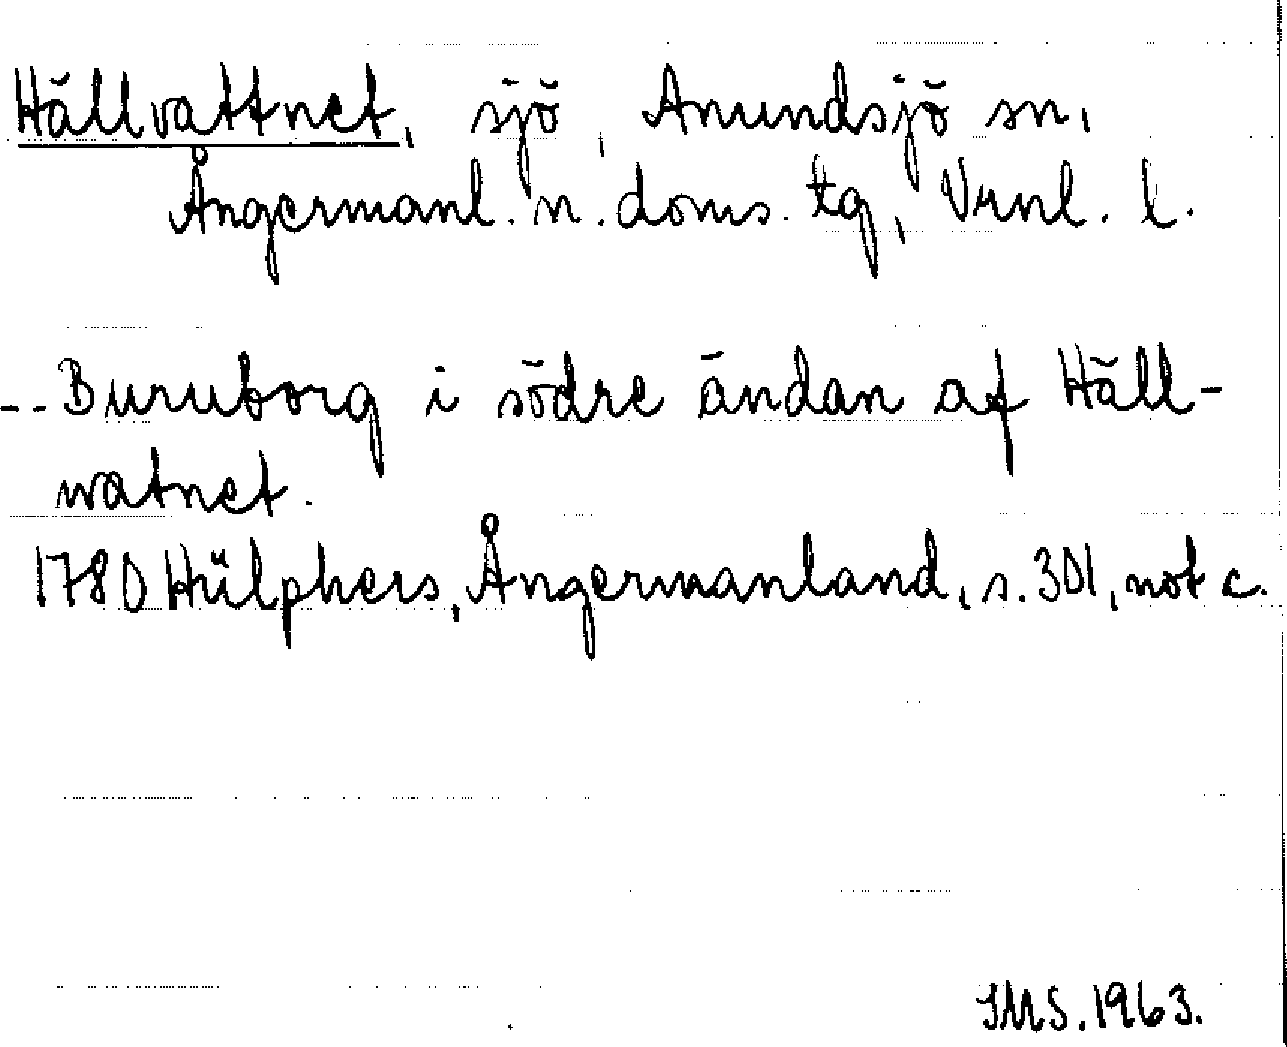 Hällvattnet, sjö, Anundsjö sn,
Ångermanl. n. doms. tg, Vnl. l.
-- Buruborg i södre ändan af Häll-
watnet.
1780 Hülphers, Ångermanland, s. 301, not c.
IMS. 1963.